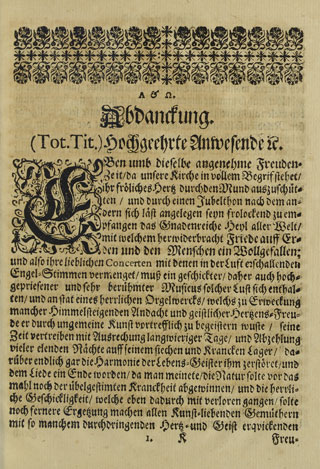 A & Ω.
Abdanckung.
(Tot. Tit.) Hochgeehrte Anwesende ꝛc.
EBen umb dieselbe angenehme Freuden-
Zeit/da unsere Kirche in vollem Begriff stehet/
ihr fröliches Hertz durch den Mund auszuschüt-
ten / und durch einen Jubelthon nach dem an-
dern sich läst angelegen seyn frolockend zu em-
pfangen das Gnadenreiche Heyl aller Welt/
mit welchem herwiderbracht Friede auff Er-
den und den Menschen ein Wollgefallen;
und also ihr lieblichen Concerten mit denen in der Luft erschallenden
Engel-Stimmen vermenget/ muß ein geschickter/ daher auch hoch-
gepriesener und sehr berühmter Musicus solcher Lust sich enthal-
ten/ und an stat eines herrlichen Orgelwercks/ welchs zu Erweckung
mancher Himmelsteigenden Andacht und geistlicher Hertzens-Freu-
de er durch ungemeine Kunst vortrefflich zu begeistern wuste / seine
Zeit vertreiben mit Ausrechnung langwieriger Tage/ und Abzehlung
vieler elenden Nächte auff seinem siechen und Krancken Lager/ da-
rüber endlich gar die Harmonie der Lebens-Geister ihm zerstöret/und
dem Liede ein Ende worden/ da man meinete/die Natur solte vor das
mahl noch der übelgestimten Kranckheit abgewinnen/ und die herrli-
che Geschickligkeit/ welche eben dadurch mit verloren gangen/ solte
noch fernere Ergetzung machen allen Kunst-liebenden Gemüthern
mit so manchem durchdringenden Hertz-und Geist erqvickenden
1. K Freu-